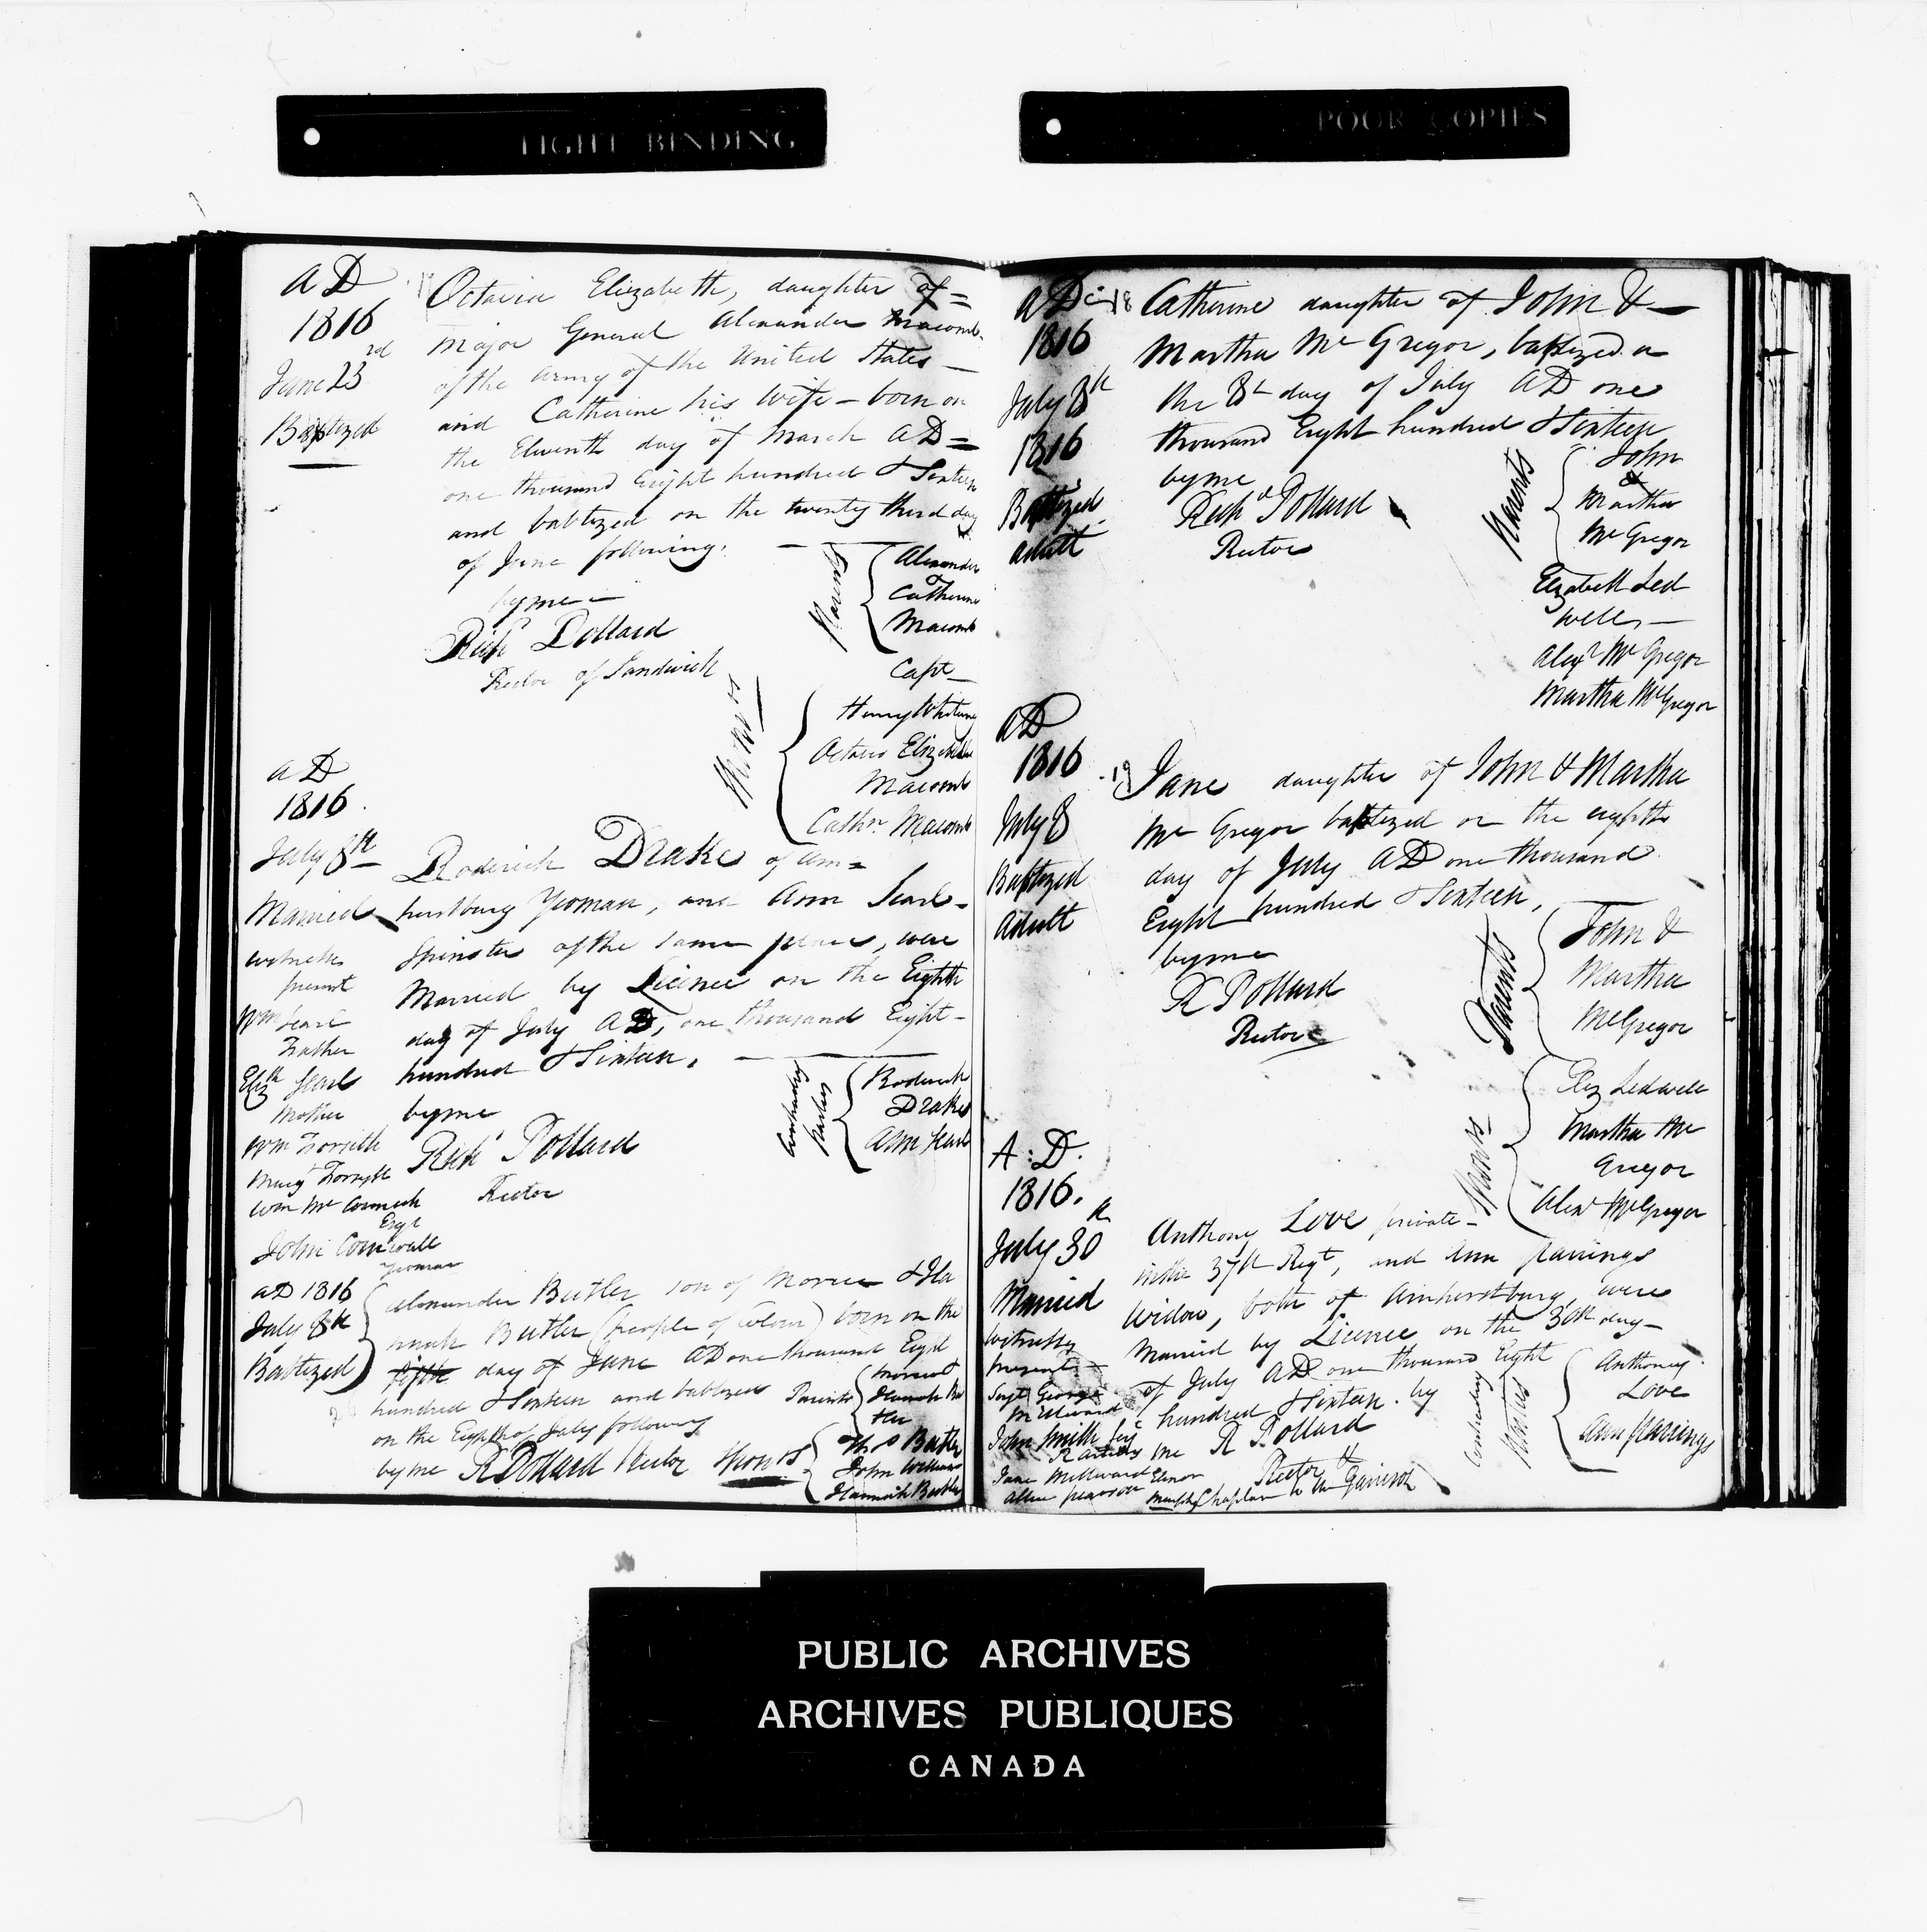 TIGHT BINDING
POOR COPIES
A D
1816
June 23rd
Baptized
17
Octavia Elizabeth, daughter of =
Major General Alexander Macomb
of the Army of the United States —
and Catherine his Wife — born on
the Eleventh day of March AD =
one thousand Eight hundred & Sixteen
and babtized on the twenty third day
of June following. —
by me —
Richd Pollard
Rector of Sandwich
Parents
Alexander
Catherine
Macomb
Sponsors
Capt —
Henry Whiting
Octavia Elizabeth
Macomb
Cathne Macomb
A D
1816.
July 8th
Married
witnesses
present
Wm Searl
Father
Elizth Searl
Mother
Wm Forsith
Margt Forsyth
Wm Mc Cormick
Esqr
John Cornwall
Yeoman
Roderick Drake of Am =
herstburg Yeoman, and Ann Searl -
Spinster of the same place, were
Married by Licence on the Eighth
day of July AD, one thousand Eight -
hundred & Sixteen. —
by me
Richd Pollard
Rector
Contracting
Parties
Roderick
Drake
Ann Searl
AD 1816
July 8th
Babtized
Alexander Butler son of Morice & Ha
nnah Butler (people of Colour) born on the
fifth day of June AD one thousand Eight
hundred & Sixteen and babtized
on the Eighth of July following
by me R Pollard Rector
Parents
Morice &
Hannah Bu
tler
Sponsors
Thos Butler
John Williams
Hannah Butler
A D
1816
July 8th
1816
Baptized
Adult
18
Catherine daughter of John & —
Martha Mc Gregor, baptized on
the 8th day of July AD one
thousand Eight hundred & Sixteen
by me
Richd Pollard
Rector
Parents
John
&
Martha
Mc Gregor
Elizabeth Led
well —
Alexr Mc Gregor
Martha McGregor
A D
1816
July 8
Baptized
Adult
19
Jane daughter of John & Martha
Mc Gregor baptized on the eighth
day of July AD one thousand
Eight hundred & Sixteen,
by me
R Pollard
Rector
Parents
John &
Martha
McGregor
Sponsors
Eliz Ledwell
Martha Mc
Gregor
Alexr McGregor
A : D.
1816.
July 30th
Married
Witnesses
present —
Sergt George
Millward
John Smith
R Artillery
Jane Millward
Elinor
Murphy
Anthony Love private -
in the 37th Regt, and Ann
Widow, both of Amherstburg, were
Married by Licence on the 30th day —
of July AD one thousand Eight
hundred & Sixteen. by
me R Pollard
Rector &
Chaplain to the Garrison
Contracting
Parties
Anthoney
Love
Ann
PUBLIC ARCHIVES
ARCHIVES PUBLIQUES
CANADA